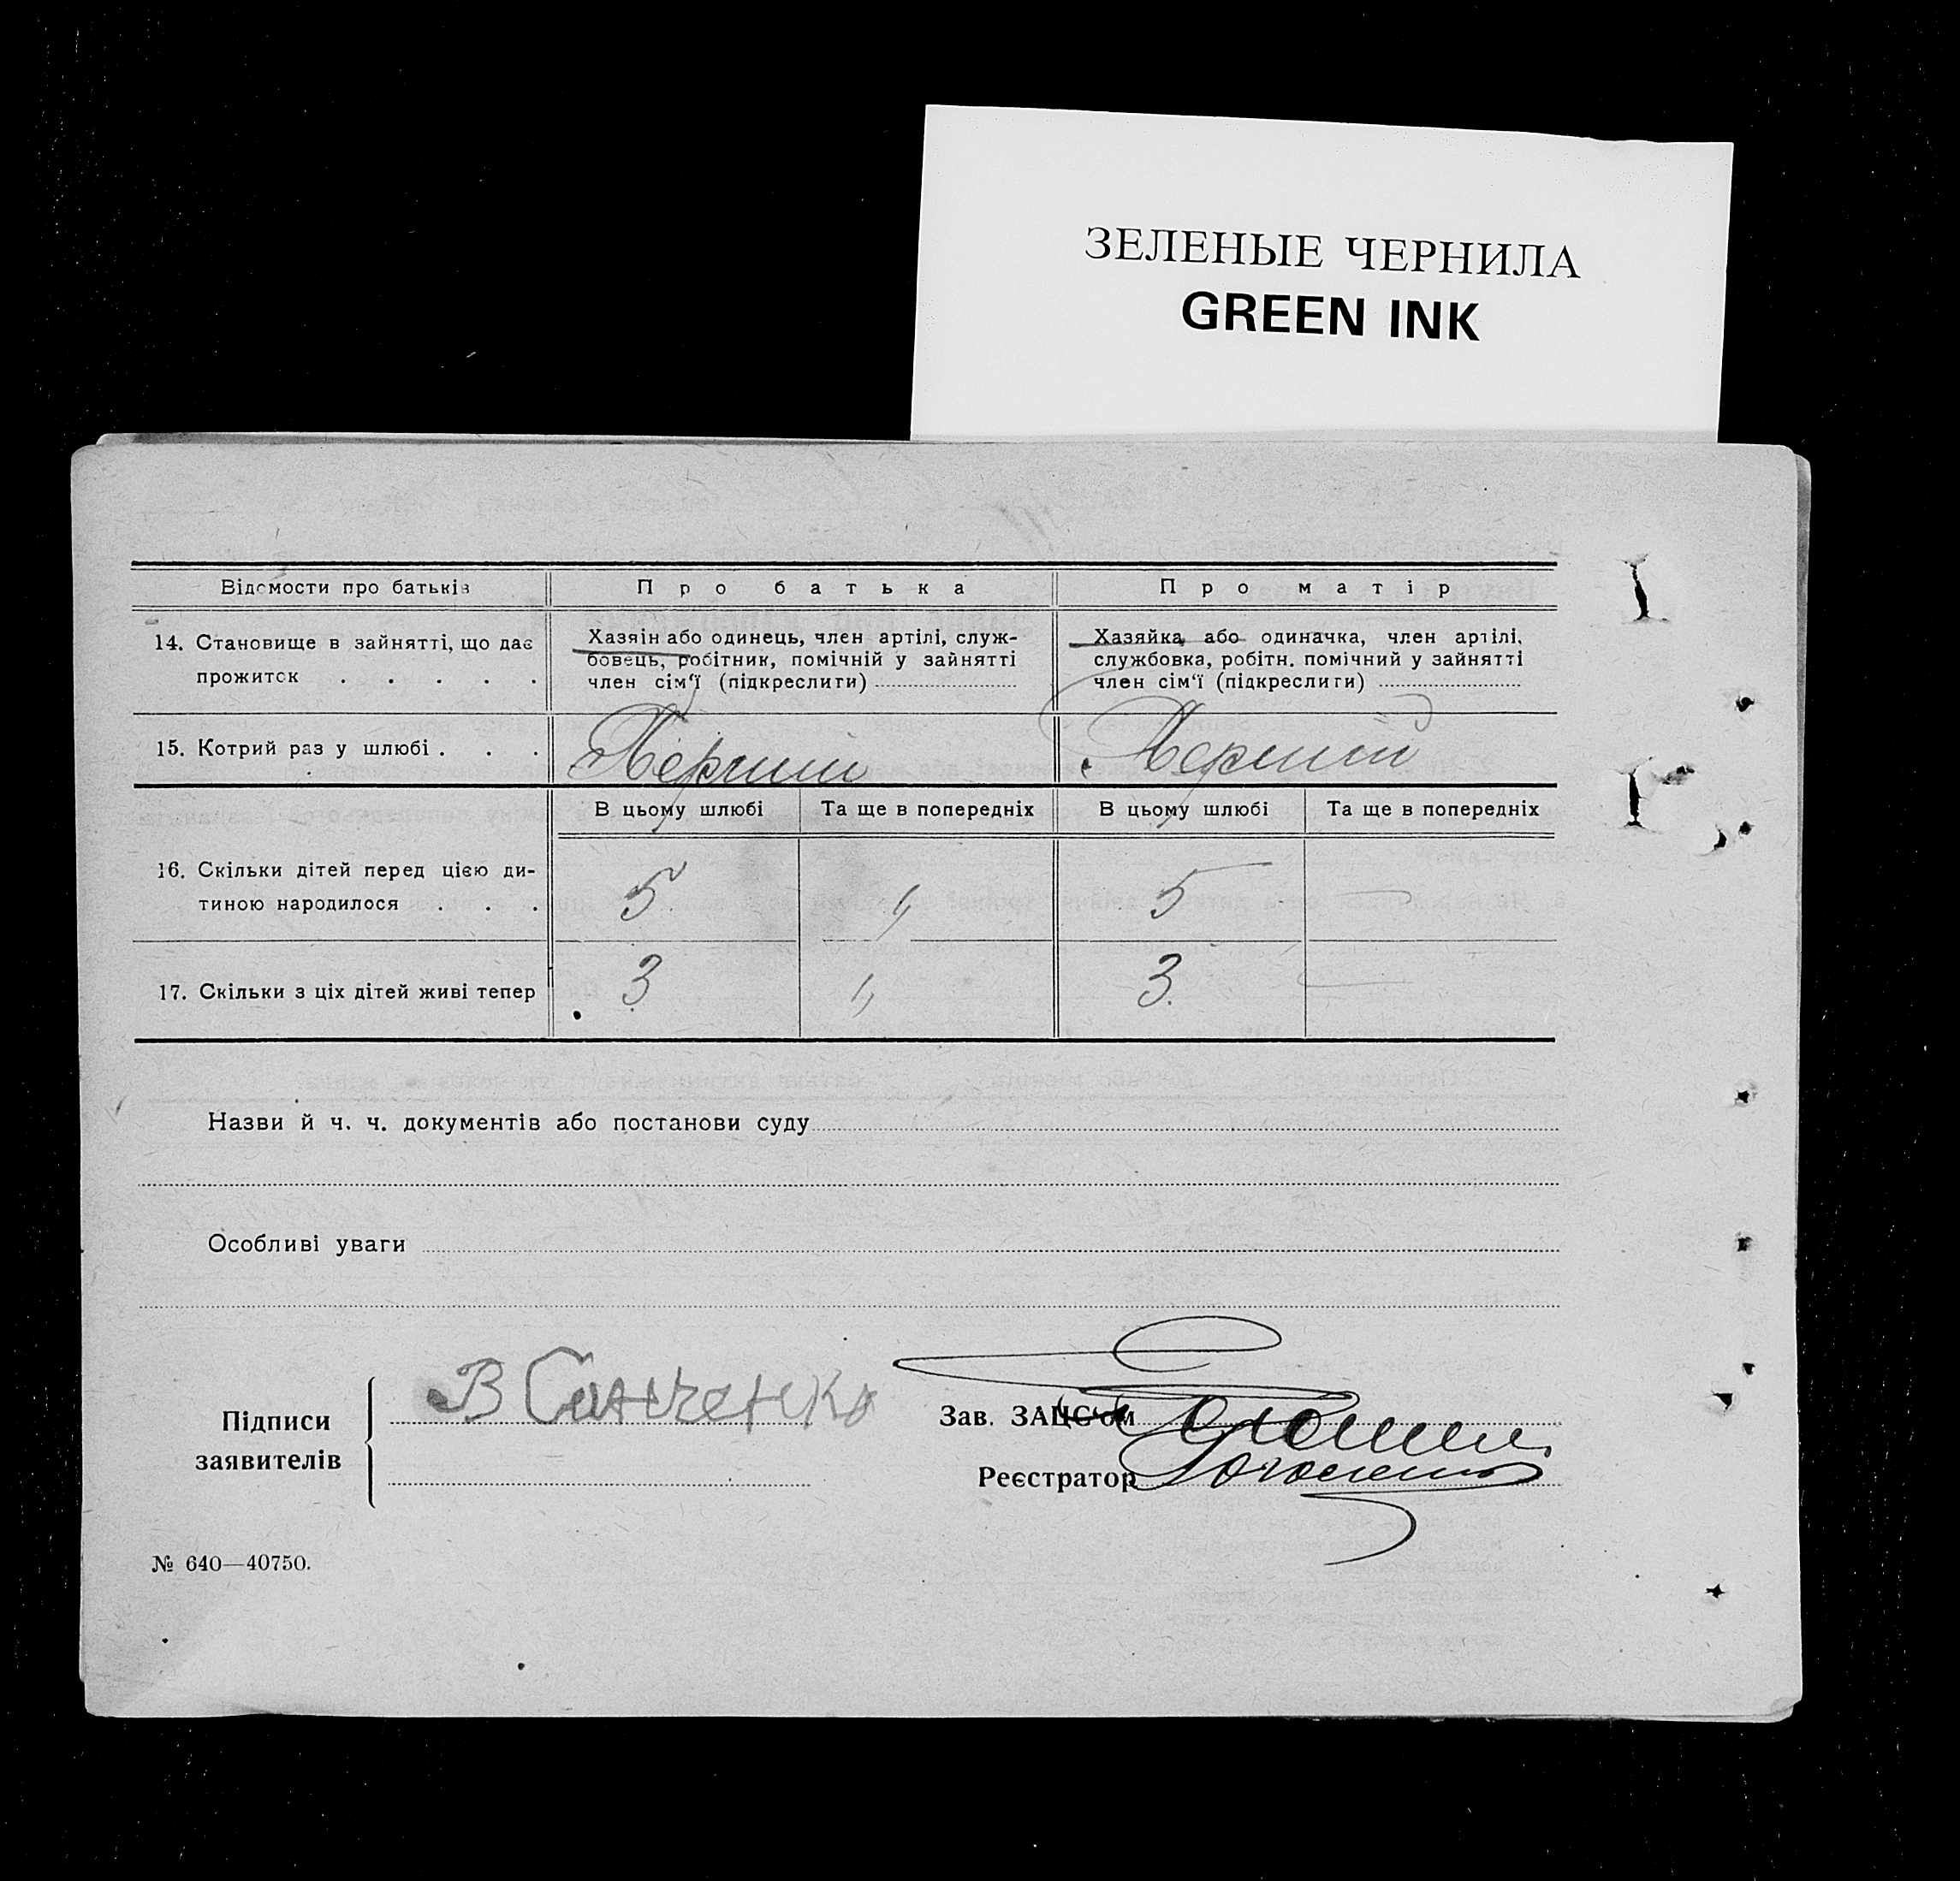 ЗЕЛЕНЫЕ ЧЕРНИЛА
GREEN INK
Відомости про батьків
Про батька
Про матір
14. Становище в зайнятті, що дає
прожиток . . . . .
Хазяін або одинець, член артілі, служ-
бовець, робітник, помічній у зайнятті
член сім'ї (підкреслити)
Хазяйка або одиначка, член артілі,
службовка, робітн. помічний у зайнятті
член сім'ї (підкреслити)
15. Котрий раз у шлюбі . . .
Перший
Перший
В цьому шлюбі
Та ще в попередніх
В цьому шлюбі
Та ще в попередніх
16. Скільки дітей перед цією ди-
тиною народилося . . .
5
"
5
—
17. Скільки з ціх дітей живі тепер
3
"
3.
—
Назви й ч. ч. документів або постанови суду
Особливі уваги
Підписи
заявителів
В
Зав. ЗАЦС'ом
Реєстратор
№ 640—40750.